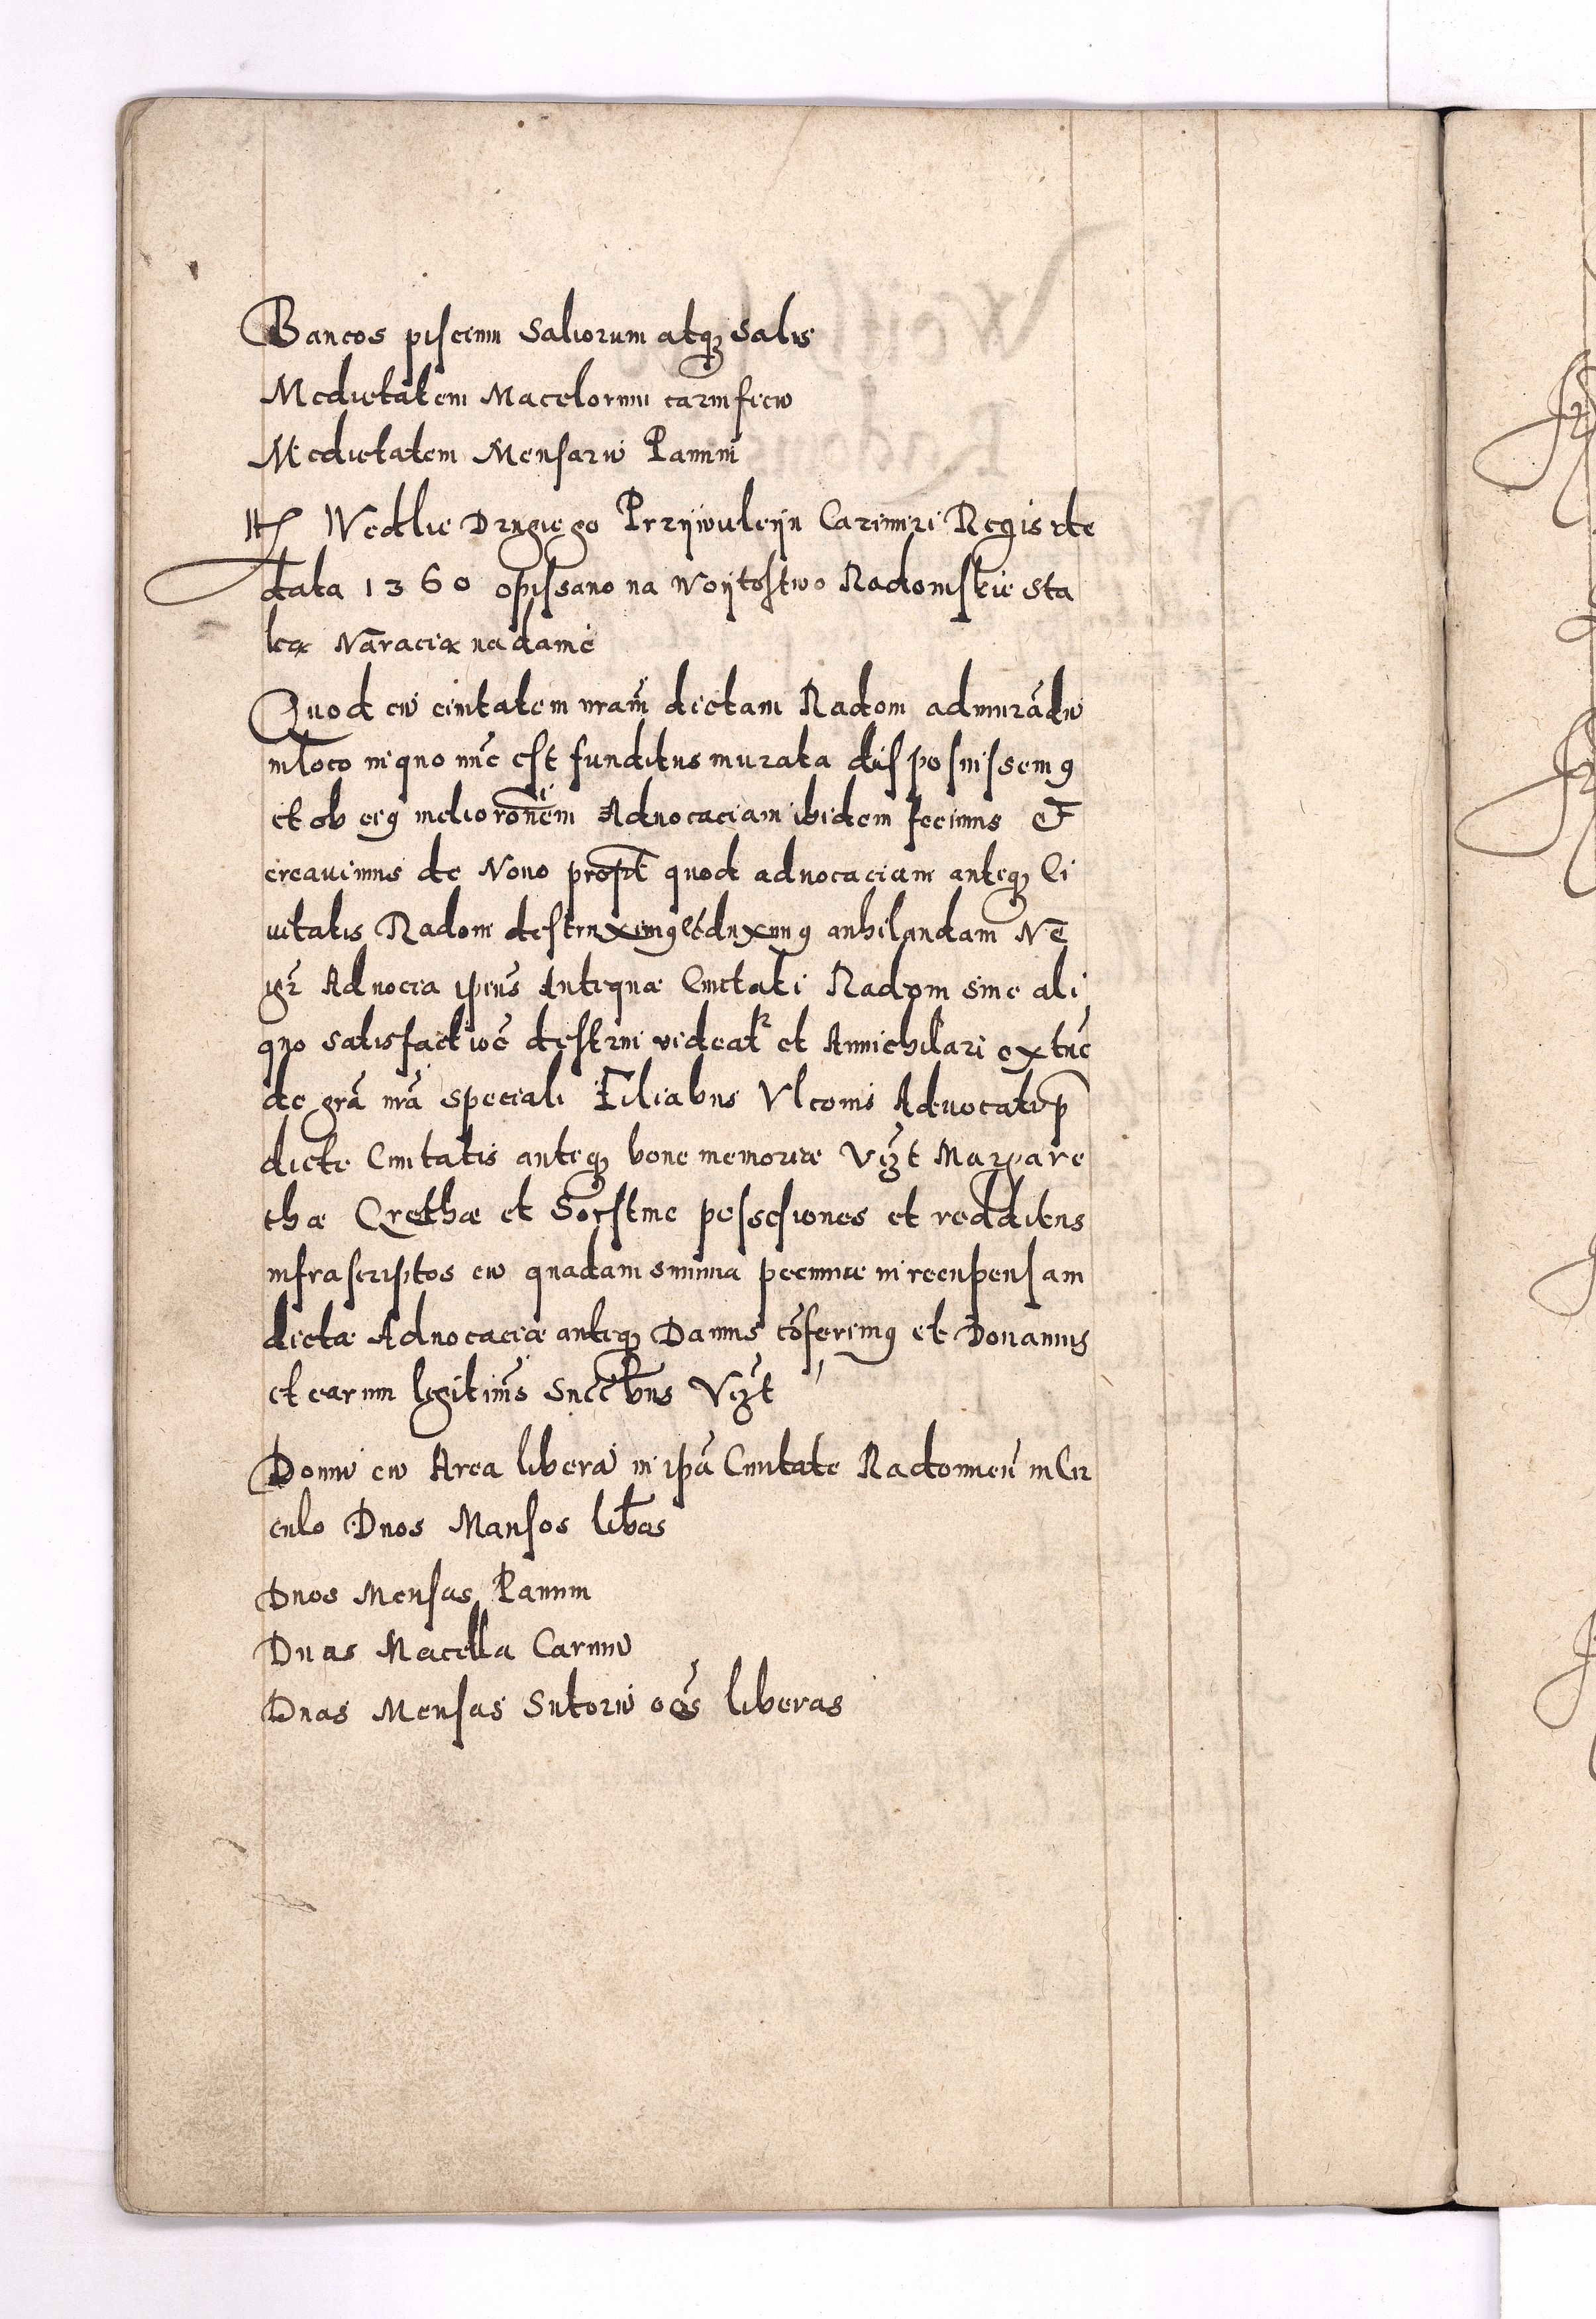 Bancos piscium Saliorum atqz Salis
Medietatem Macelorum carnificū
Medietatem Mensarū Pannī
Itē Wedlie Drugiego Przywuleyu Cazimiri Regis de
data 1360 opissano na Woytostwo Radomskie sta
Narracia nadanie
Quod cū civitatem nrām dictam Radom ad murādū
in loco in quo nūc est funditus murata disposuissem9
et ob ei9 meliorōnem Advocaciam ibidem fecimus Et
creavimus de Novo propt quod advocaciam antiqz Ci
vitatis Radom destruxim9 et duxim9 anhilandam Ne
igr Advocia ipsius Antiquæ Civitati Radom sine ali
quo satisfactiōe destrui videatr et Annichilari extūc
de grā nrā speciali Filiabus Vlconis Advocati p
dicte Civitatis antiqz bone memoriæ Vizt Margare
thæ Grethæ et possesiones et redditus
infrascriptos cū quadam summa pecuniæ in recupensam
dictæ Advocaciæ antiqz Damus cōferim9 et Donamus
et earum legitimis Succbus Vizt
Domū cū Area liberā in ipā Civitate Radomień in Cir
culo Duos Mansos libas
Duos Mensas Panum
Duas Macella Carniū
Duas Mensas Sutorū oēs liberas